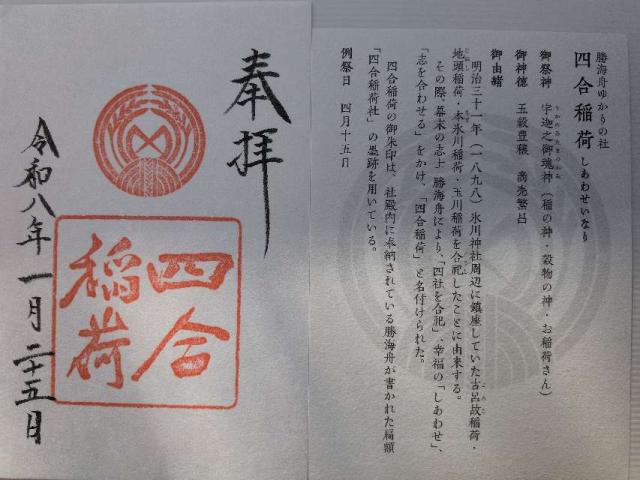 勝海舟ゆかりの社
四合稲荷 しあわせいなり
御祭神 宇迦之御魂神（稲の神・穀物の神・お稲荷さん）
御神徳 五穀豊穣 商売繁昌
御由緒
明治三十一年（一八九八）氷川神社周辺に鎮座していた古呂故稲荷・
地頭稲荷・本氷川稲荷・玉川稲荷を合祀したことに由来する。
その際、幕末の志士 勝海舟により、「四社を合祀」、幸福の「しあわせ」、
「志を合わせる」をかけ、「四合稲荷」と名付けられた。
四合稲荷の御朱印は、社殿内に奉納されている勝海舟が書かれた扁額
「四合稲荷社」の墨跡を用いている。
例祭日 四月十五日
奉拝
四合
稲荷
令和八年一月二十五日